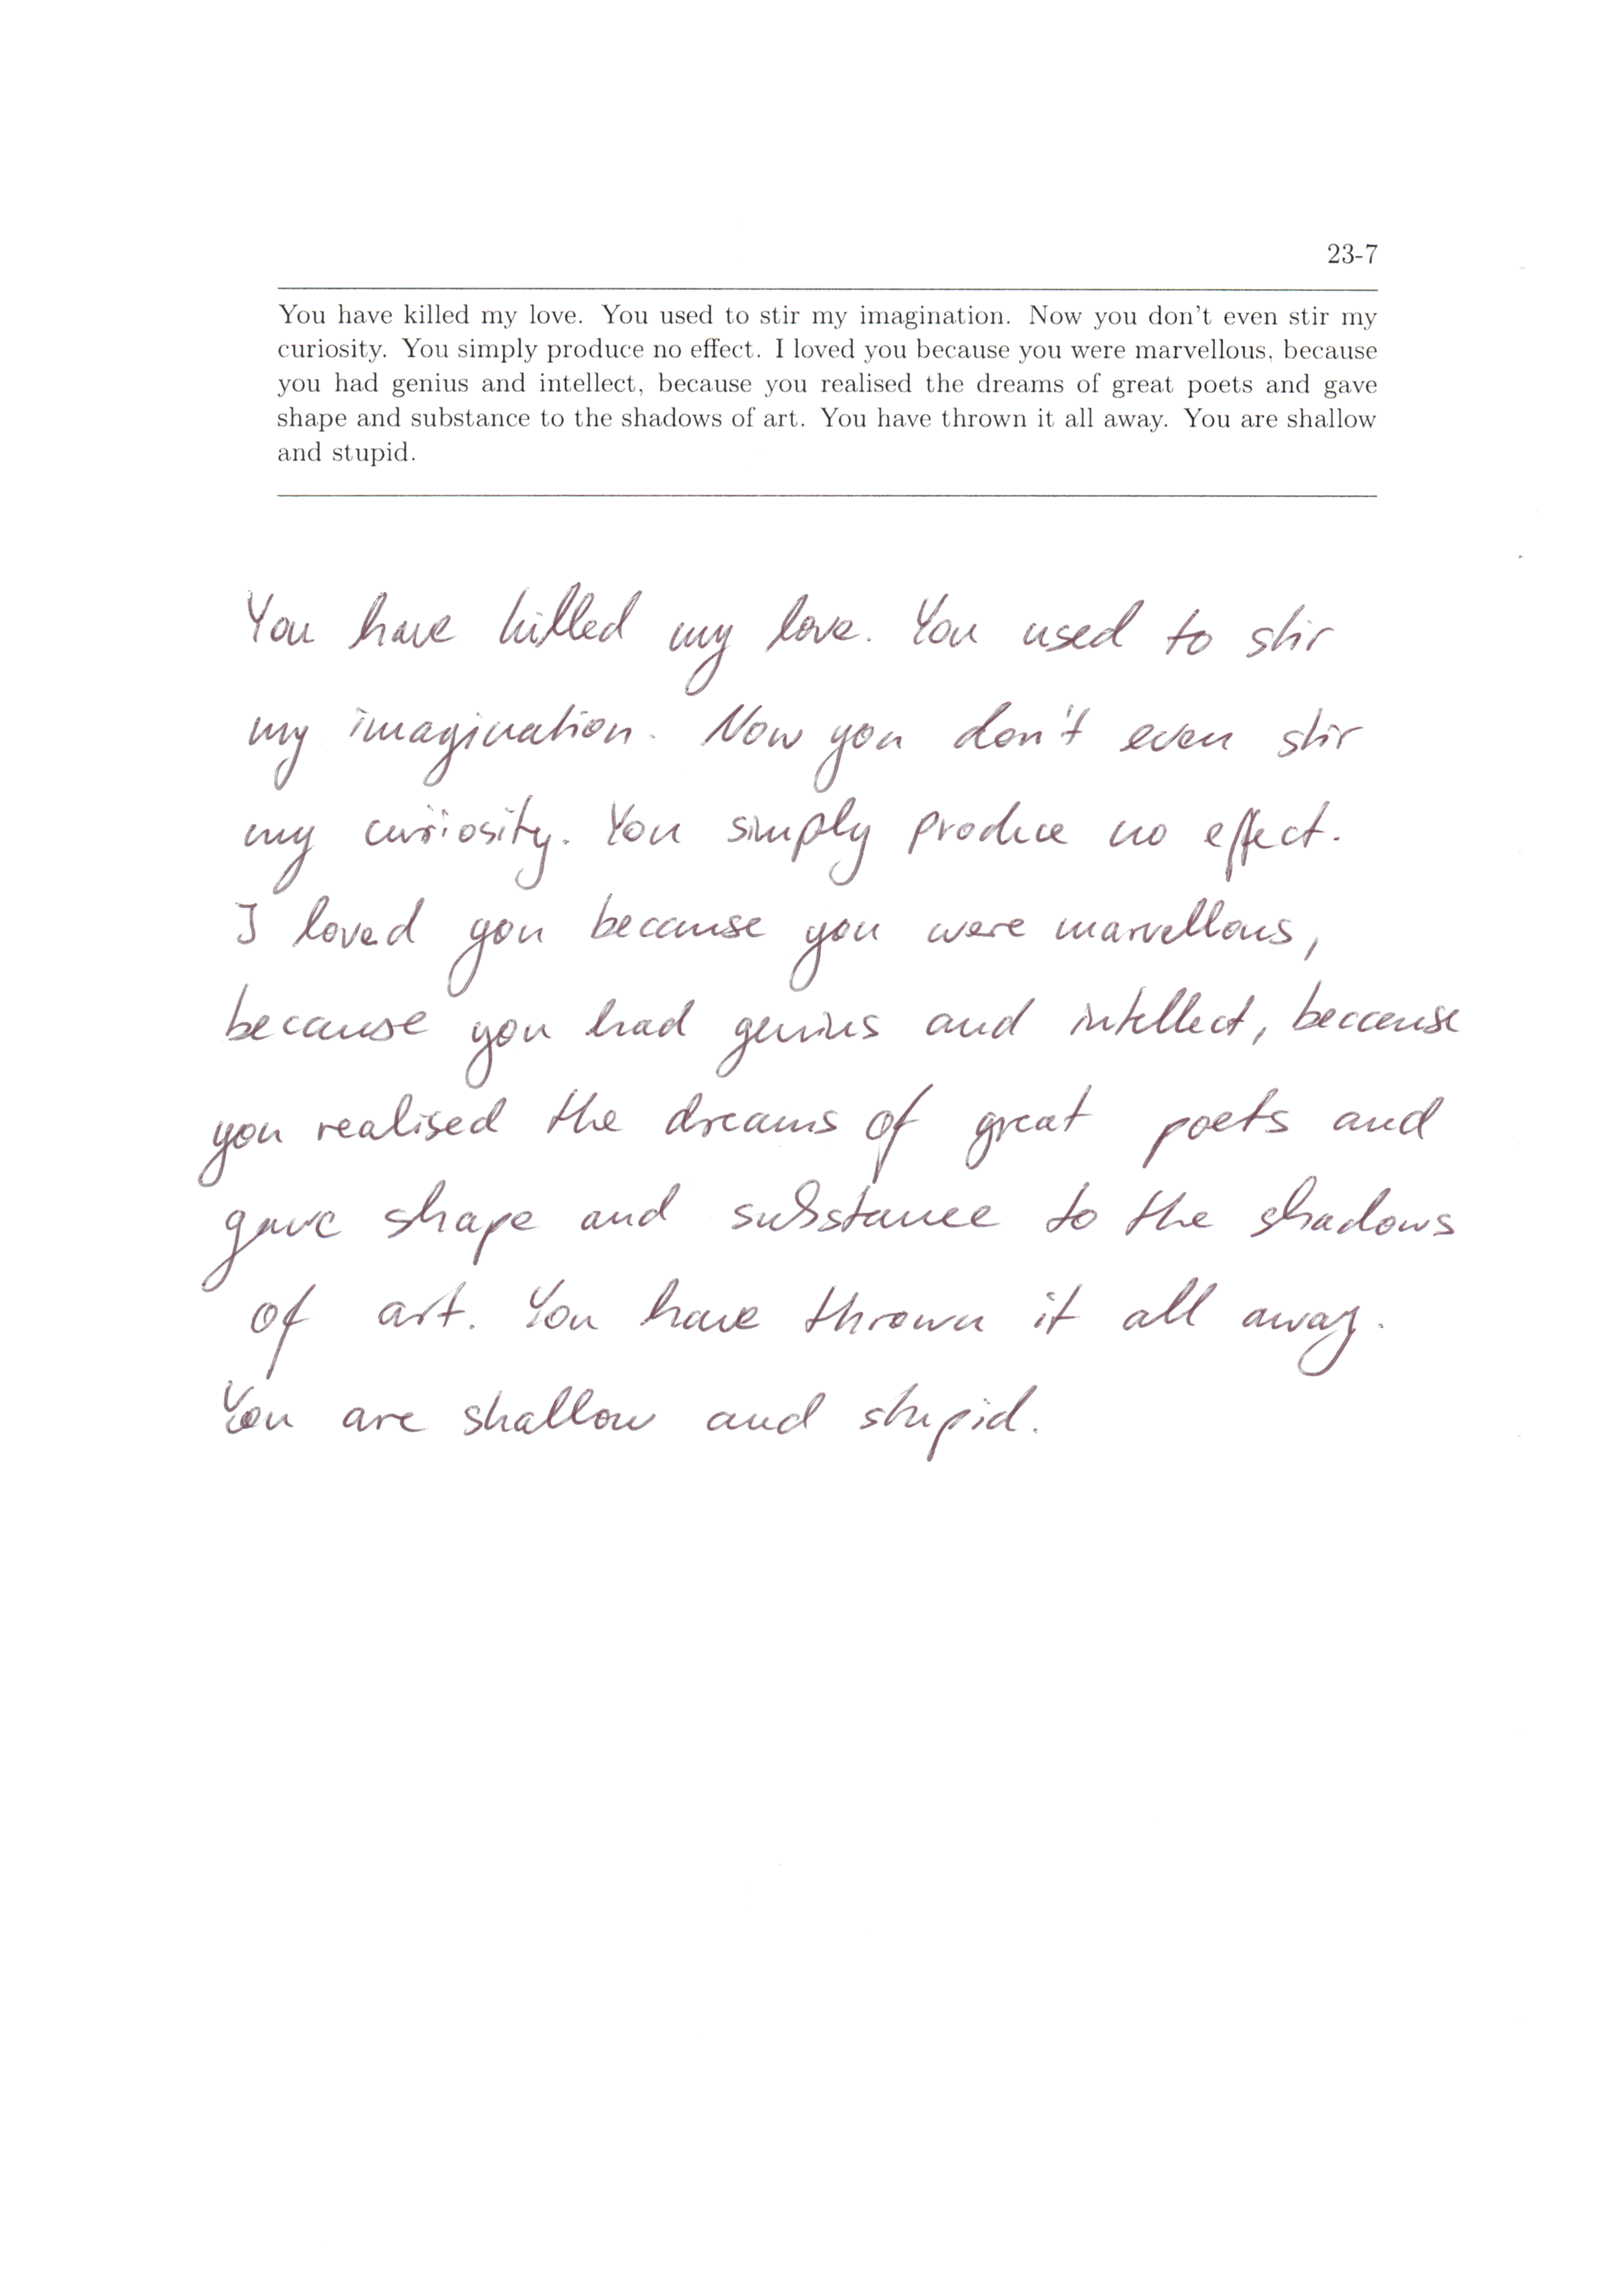 23-7
You have killed my love. You used to stir my imagination. Now you don't even stir my
curiosity. You simply produce no effect. I loved you because you were marvellous, because
you had genius and intellect, because you realised the dreams of great poets and gave
shape and substance to the shadows of art. You have thrown it all away. You are shallow
and stupid.
You have killed my love. You used to stir
my imagination. Now you don't even stir
my curiosity. You simply produce no effect.
I loved you because you were marvellous,
because you had genius and intellect, because
you realised the dreams of great poets and
gave shape and substance to the shadows
of art. You have thrown it all away.
You are shallow and stupid.